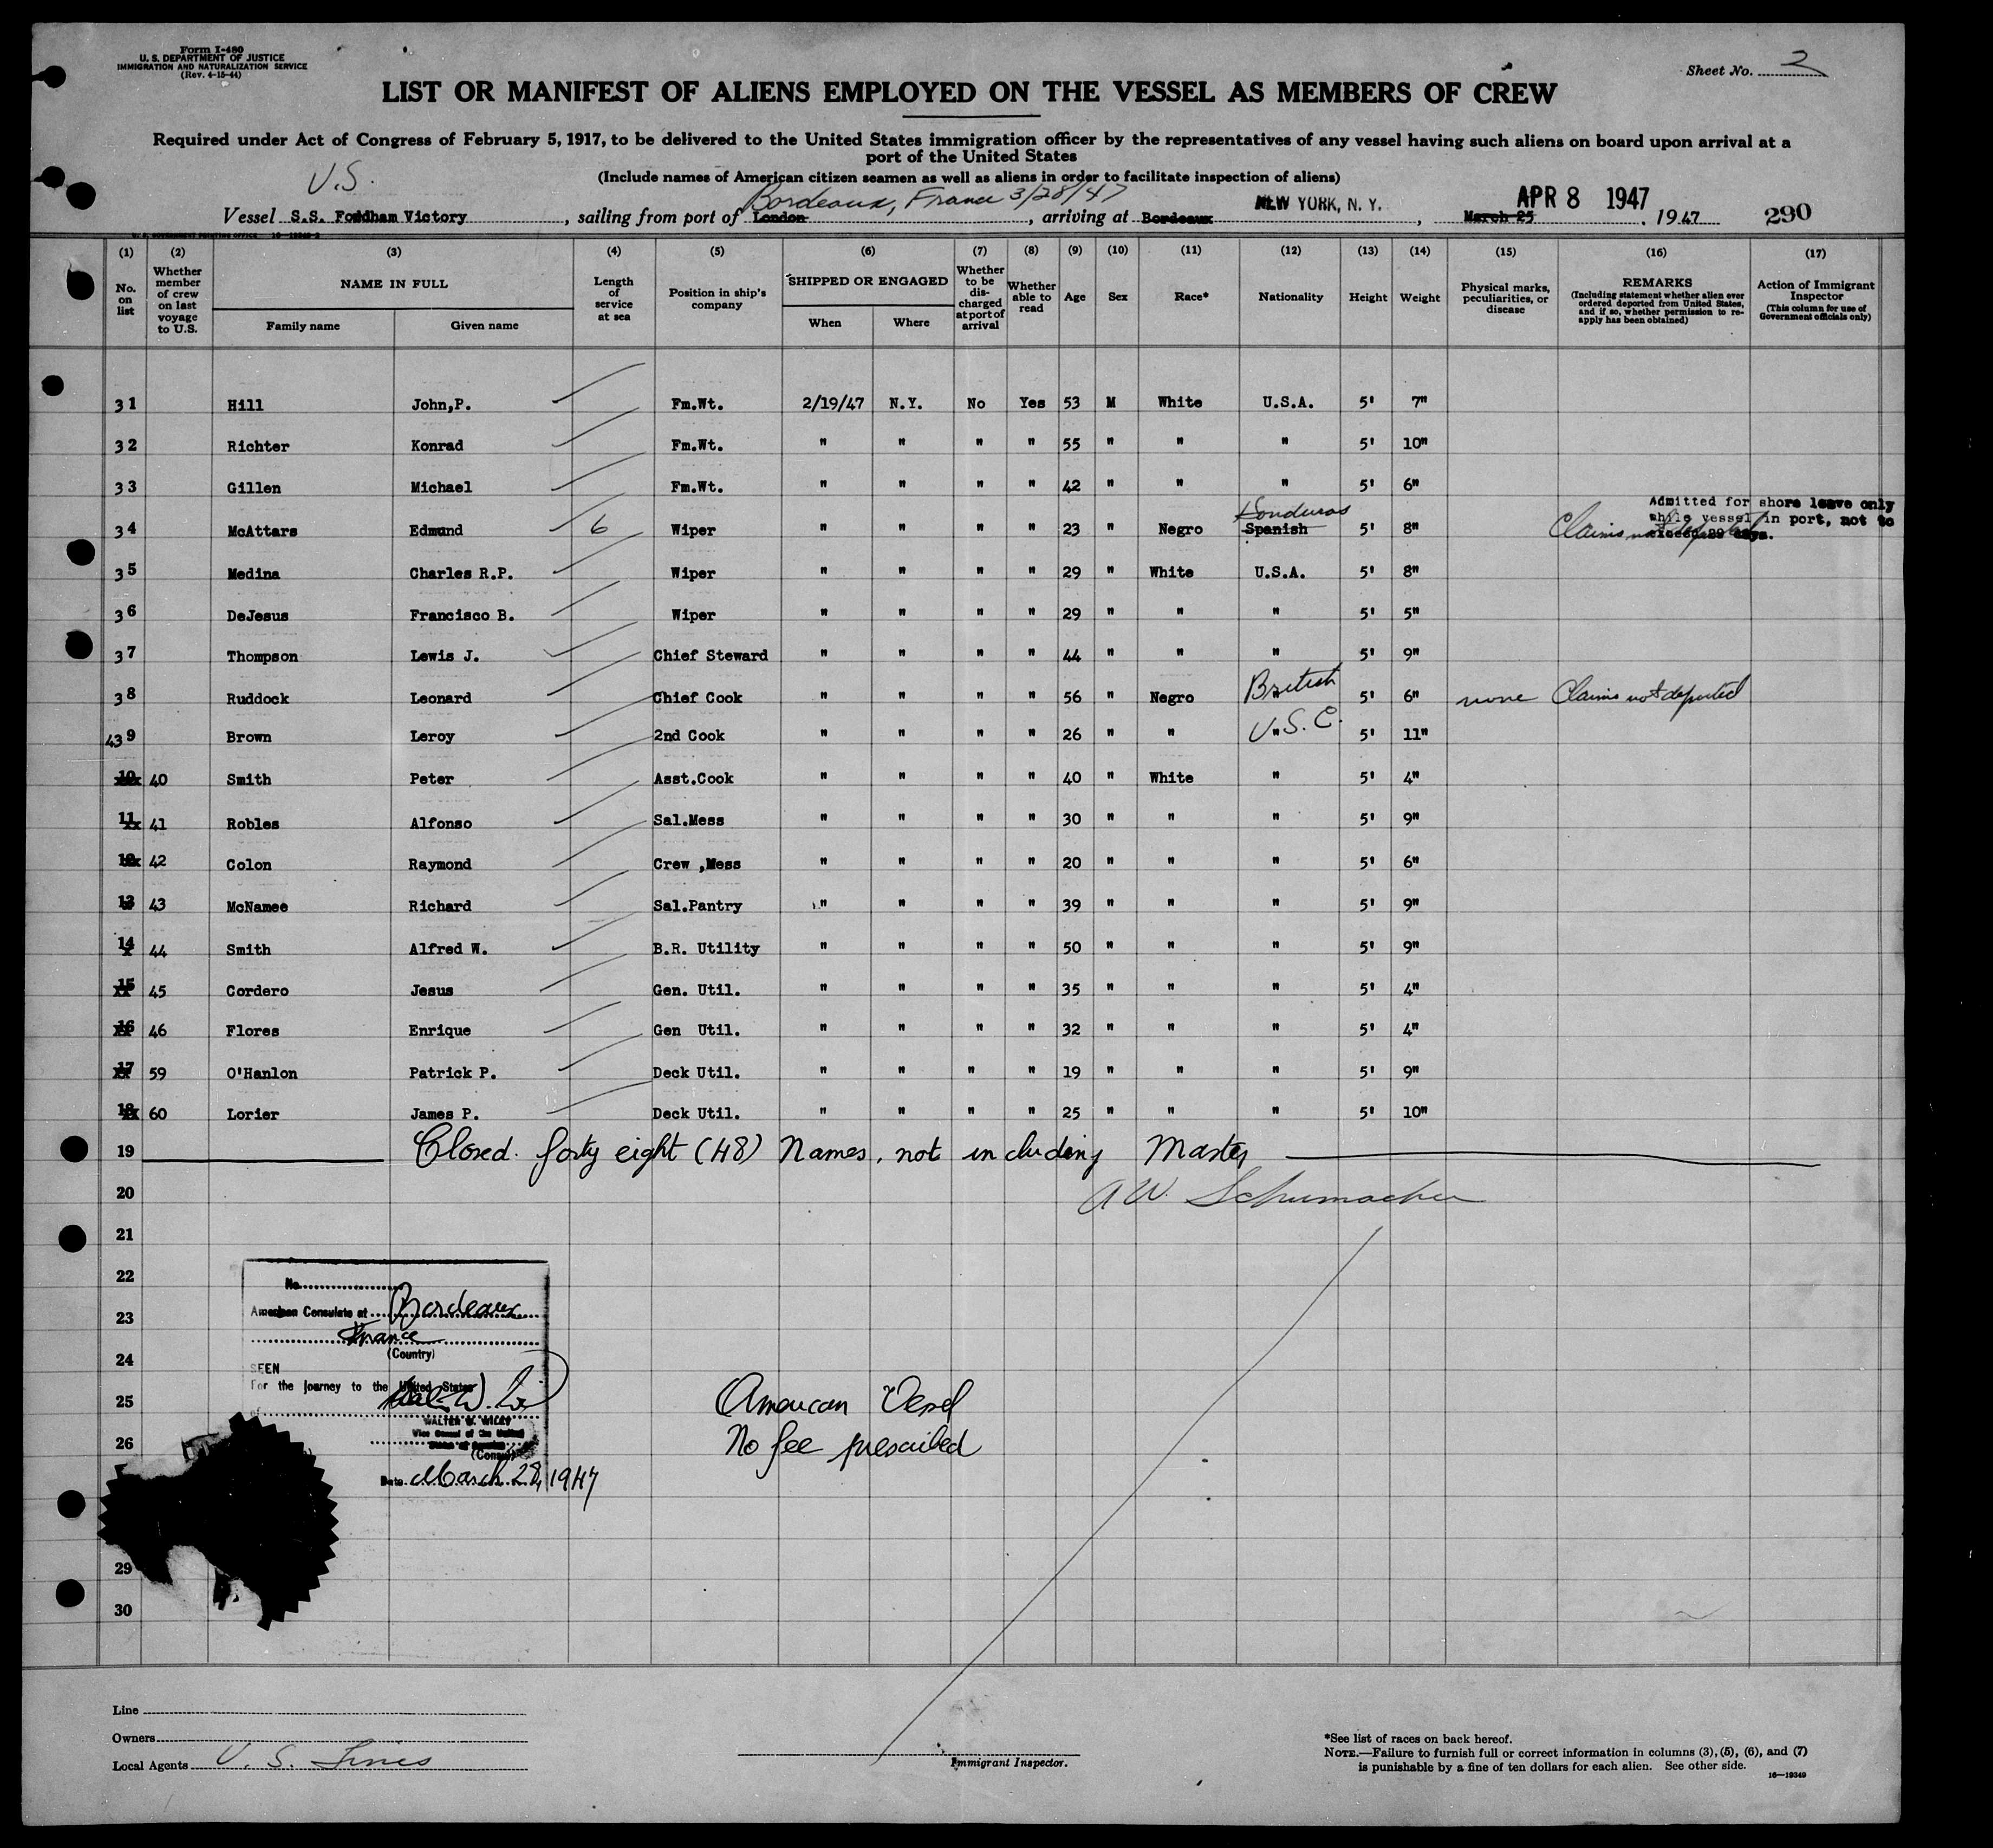 Form I-480
U. S. DEPARTMENT OF JUSTICE
IMMIGRATION AND NATURALIZATION SERVICE
(Rev. 4-15-44)
Sheet No. 2
LIST OR MANIFEST OF ALIENS EMPLOYED ON THE VESSEL AS MEMBERS OF CREW
Required under Act of Congress of February 5, 1917, to be delivered to the United States immigration officer by the representatives of any vessel having such aliens on board upon arrival at a
port of the United States
(Include names of American citizen seamen as well as aliens in order to facilitate inspection of aliens)
U.S.
Bordeaux, France 3/28/47 NEW YORK, N. Y. APR 8 1947
Vessel S.S. Fordham Victory, sailing from port of London, arriving at Bordeaux, March 25, 1947 290
(1) (2) (3) (4) (5) (6) (7) (8) (9) (10) (11) (12) (13) (14) (15) (16) (17)
No. on list
Whether member of crew on last voyage to U.S.
NAME IN FULL
Family name Given name
Length of service at sea
Position in ship's company
SHIPPED OR ENGAGED
When Where
Whether to be discharged at port of arrival
Whether able to read
Age
Sex
Race*
Nationality
Height
Weight
Physical marks, peculiarities, or disease
REMARKS
(Including statement whether alien ever ordered deported from United States, and if so, whether permission to re-apply has been obtained)
Action of Immigrant Inspector
(This column for use of Government officials only)
31 Hill John,P. Fm.Wt. 2/19/47 N.Y. No Yes 53 M White U.S.A. 5' 7"
32 Richter Konrad Fm.Wt. " " " " 55 " " " 5' 10"
33 Gillen Michael Fm.Wt. " " " " 42 " " " 5' 6"
34 McAttars Edmund 6 Wiper " " " " 23 " Negro Spanish Honduras 5' 8" Claims not deported
Admitted for shore leave only
while vessel in port, not to
exceed 29 days.
35 Medina Charles R.P. Wiper " " " " 29 " White U.S.A. 5' 8"
36 DeJesus Francisco B. Wiper " " " " 29 " " " 5' 5"
37 Thompson Lewis J. Chief Steward " " " " 44 " " " 5' 9"
38 Ruddock Leonard Chief Cook " " " " 56 " Negro British 5' 6" none Claims not deported
439 Brown Leroy 2nd Cook " " " " 26 " " U.S.C. 5' 11"
10 40 Smith Peter Asst.Cook " " " " 40 " White " 5' 4"
11 41 Robles Alfonso Sal.Mess " " " " 30 " " " 5' 9"
12 42 Colon Raymond Crew ,Mess " " " " 20 " " " 5' 6"
13 43 McNamee Richard Sal.Pantry " " " " 39 " " " 5' 9"
14 44 Smith Alfred W. B.R. Utility " " " " 50 " " " 5' 9"
15 45 Cordero Jesus Gen. Util. " " " " 35 " " " 5' 4"
16 46 Flores Enrique Gen Util. " " " " 32 " " " 5' 4"
17 59 O'Hanlon Patrick P. Deck Util. " " " " 19 " " " 5' 9"
18 60 Lorier James P. Deck Util. " " " " 25 " " " 5' 10"
19 Closed. forty eight (48) Names, not including Master
20 A W. Schumacher
21
22
No.
23
American Consulate at Bordeaux
France
(Country)
24
SEEN
For the journey to the United States
25
of
WALTER W. WILEY
Vice Consul of the United
States of America
(Consul)
26
Date March 28, 1947
American Vessel
No fee prescribed
29
30
Line
Owners
Local Agents U. S. Lines
Immigrant Inspector.
*See list of races on back hereof.
NOTE.—Failure to furnish full or correct information in columns (3), (5), (6), and (7)
is punishable by a fine of ten dollars for each alien. See other side.
16—19349